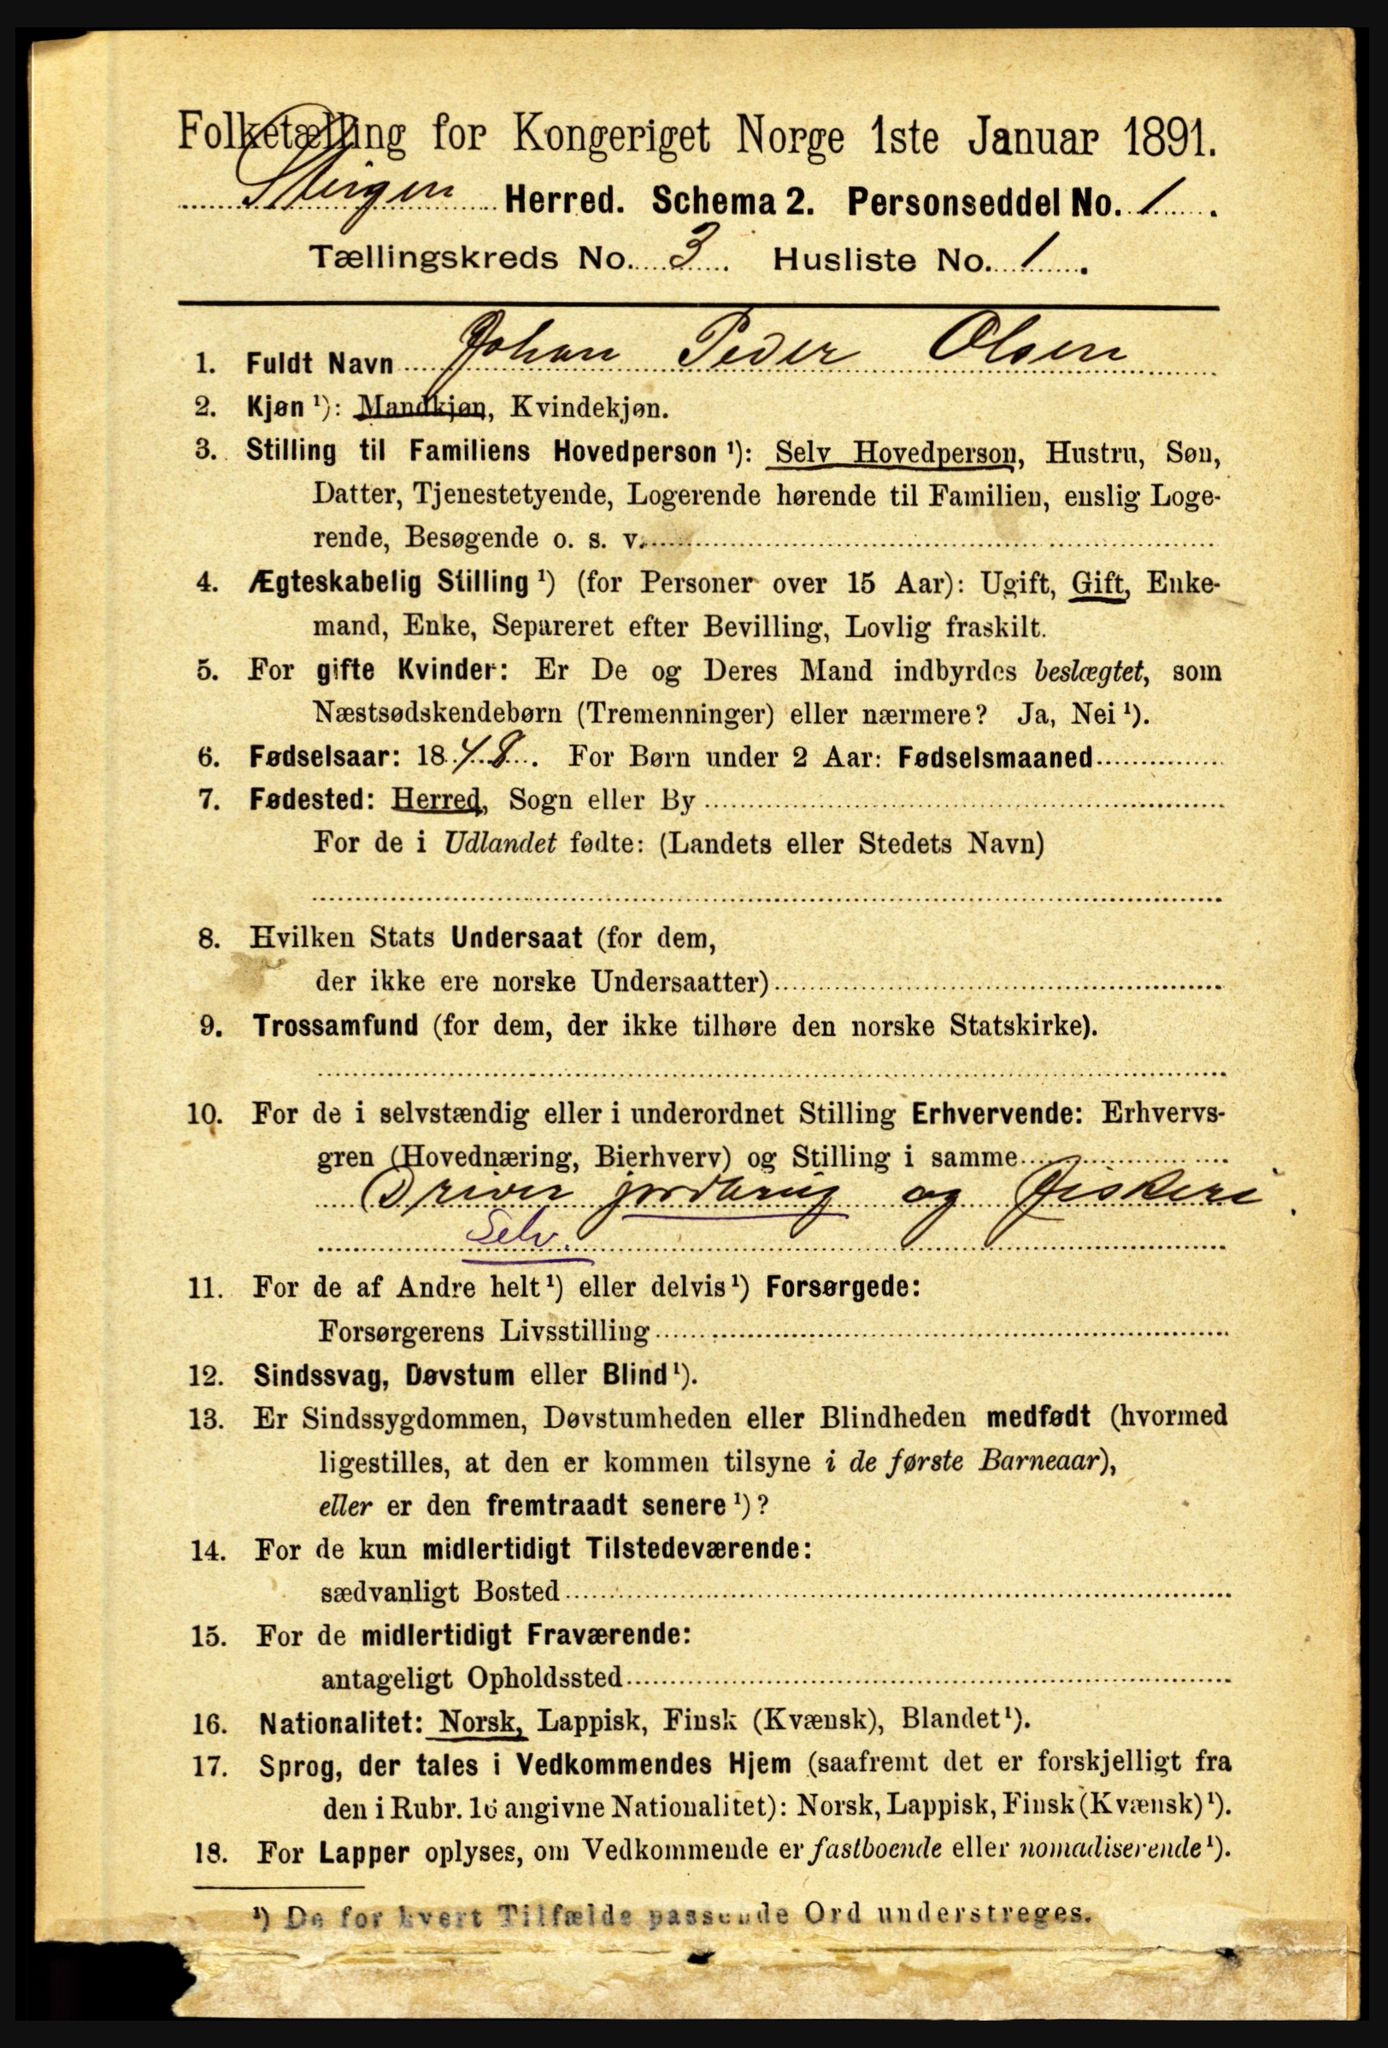 Folketælling for Kongeriget Norge 1ste Januar 1891.
Steigen Herred. Schema 2. Personseddel No. 1.
Tællingskreds No. 3. Husliste No. 1.
1. Fuldt Navn Johan Peder Olsen
2. Kjøn ¹): Mandkjøn, Kvindekjøn.
3. Stilling til Familiens Hovedperson ¹): Selv Hovedperson, Hustru, Søn,
Datter, Tjenestetyende, Logerende hørende til Familien, enslig Loge-
rende, Besøgende o. s. v.
4. Ægteskabelig Stilling ¹) (for Personer over 15 Aar): Ugift, Gift, Enke-
mand, Enke, Separeret efter Bevilling, Lovlig fraskilt.
5. For gifte Kvinder: Er De og Deres Mand indbyrdes beslægtet, som
Næstsødskendebørn (Tremenninger) eller nærmere? Ja, Nei ¹).
6. Fødselsaar: 1848. For Børn under 2 Aar: Fødselsmaaned
7. Fødested: Herred, Sogn eller By
For de i Udlandet fødte: (Landets eller Stedets Navn)
8. Hvilken Stats Undersaat (for dem,
der ikke ere norske Undersaatter)
9. Trossamfund (for dem, der ikke tilhøre den norske Statskirke).
10. For de i selvstændig eller i underordnet Stilling Erhvervende: Erhvervs-
gren (Hovednæring, Bierhverv) og Stilling i samme
Driver jordbrug og Fiskeri.
Selv.
11. For de af Andre helt ¹) eller delvis ¹) Forsørgede:
Forsørgerens Livsstilling
12. Sindssvag, Døvstum eller Blind ¹).
13. Er Sindssygdommen, Døvstumheden eller Blindheden medfødt (hvormed
ligestilles, at den er kommen tilsyne i de første Barneaar),
eller er den fremtraadt senere ¹)?
14. For de kun midlertidigt Tilstedeværende:
sædvanligt Bosted
15. For de midlertidigt Fraværende:
antageligt Opholdssted
16. Nationalitet: Norsk, Lappisk, Finsk (Kvænsk), Blandet ¹).
17. Sprog, der tales i Vedkommendes Hjem (saafremt det er forskjelligt fra
den i Rubr. 16 angivne Nationalitet): Norsk, Lappisk, Finsk (Kvænsk) ¹).
18. For Lapper oplyses, om Vedkommende er fastboende eller nomadiserende ¹).
¹) De for hvert Tilfælde passende Ord understreges.